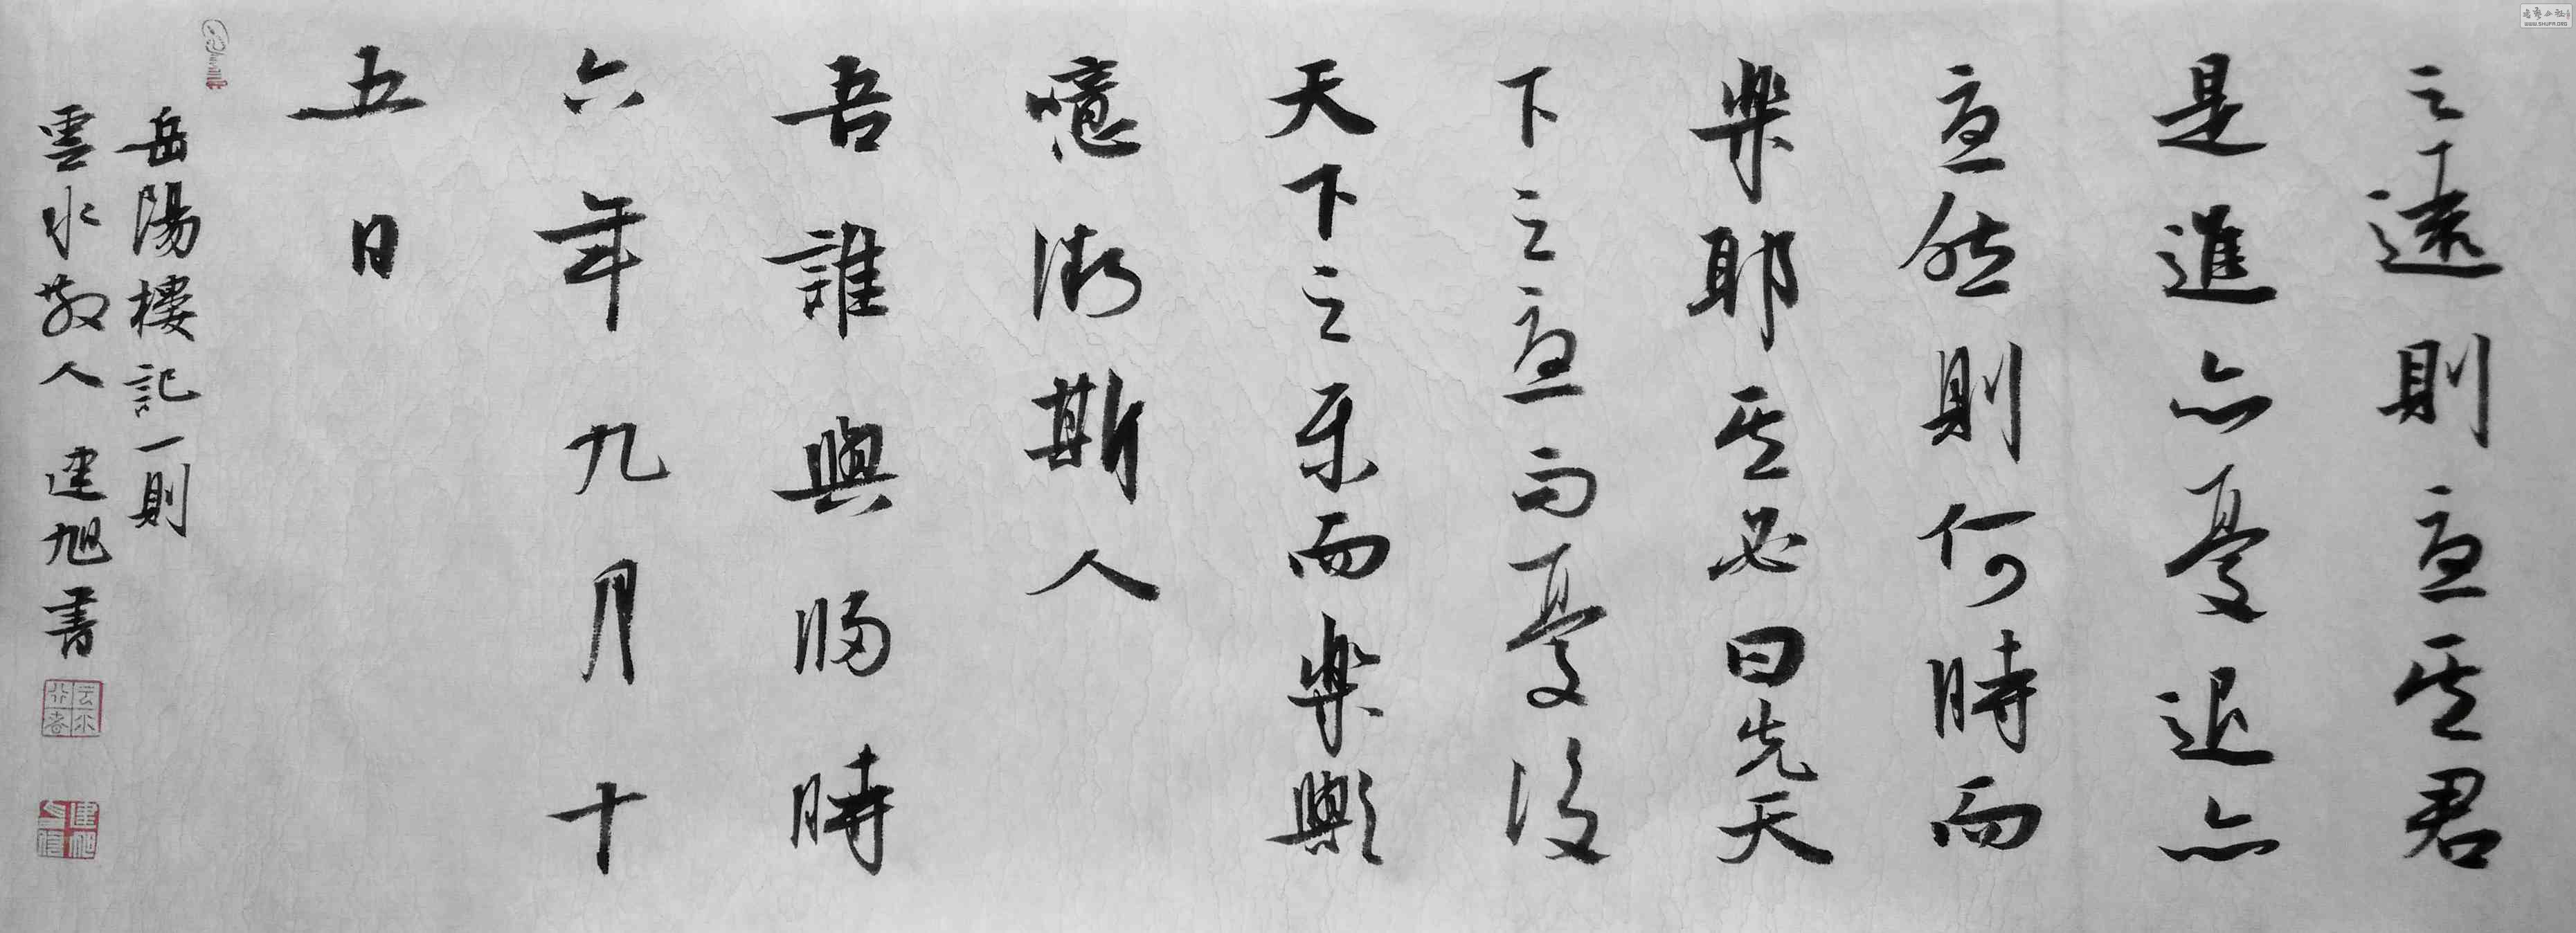 之遠則憂其君
是進亦憂退亦
憂然則何時而
樂耶其必曰先天
下之憂而憂後
天下之樂而樂歟
噫微斯人
吾誰與歸時
六年九月十
五日
岳陽樓記一則
雲水散人 建旭書
云水行者